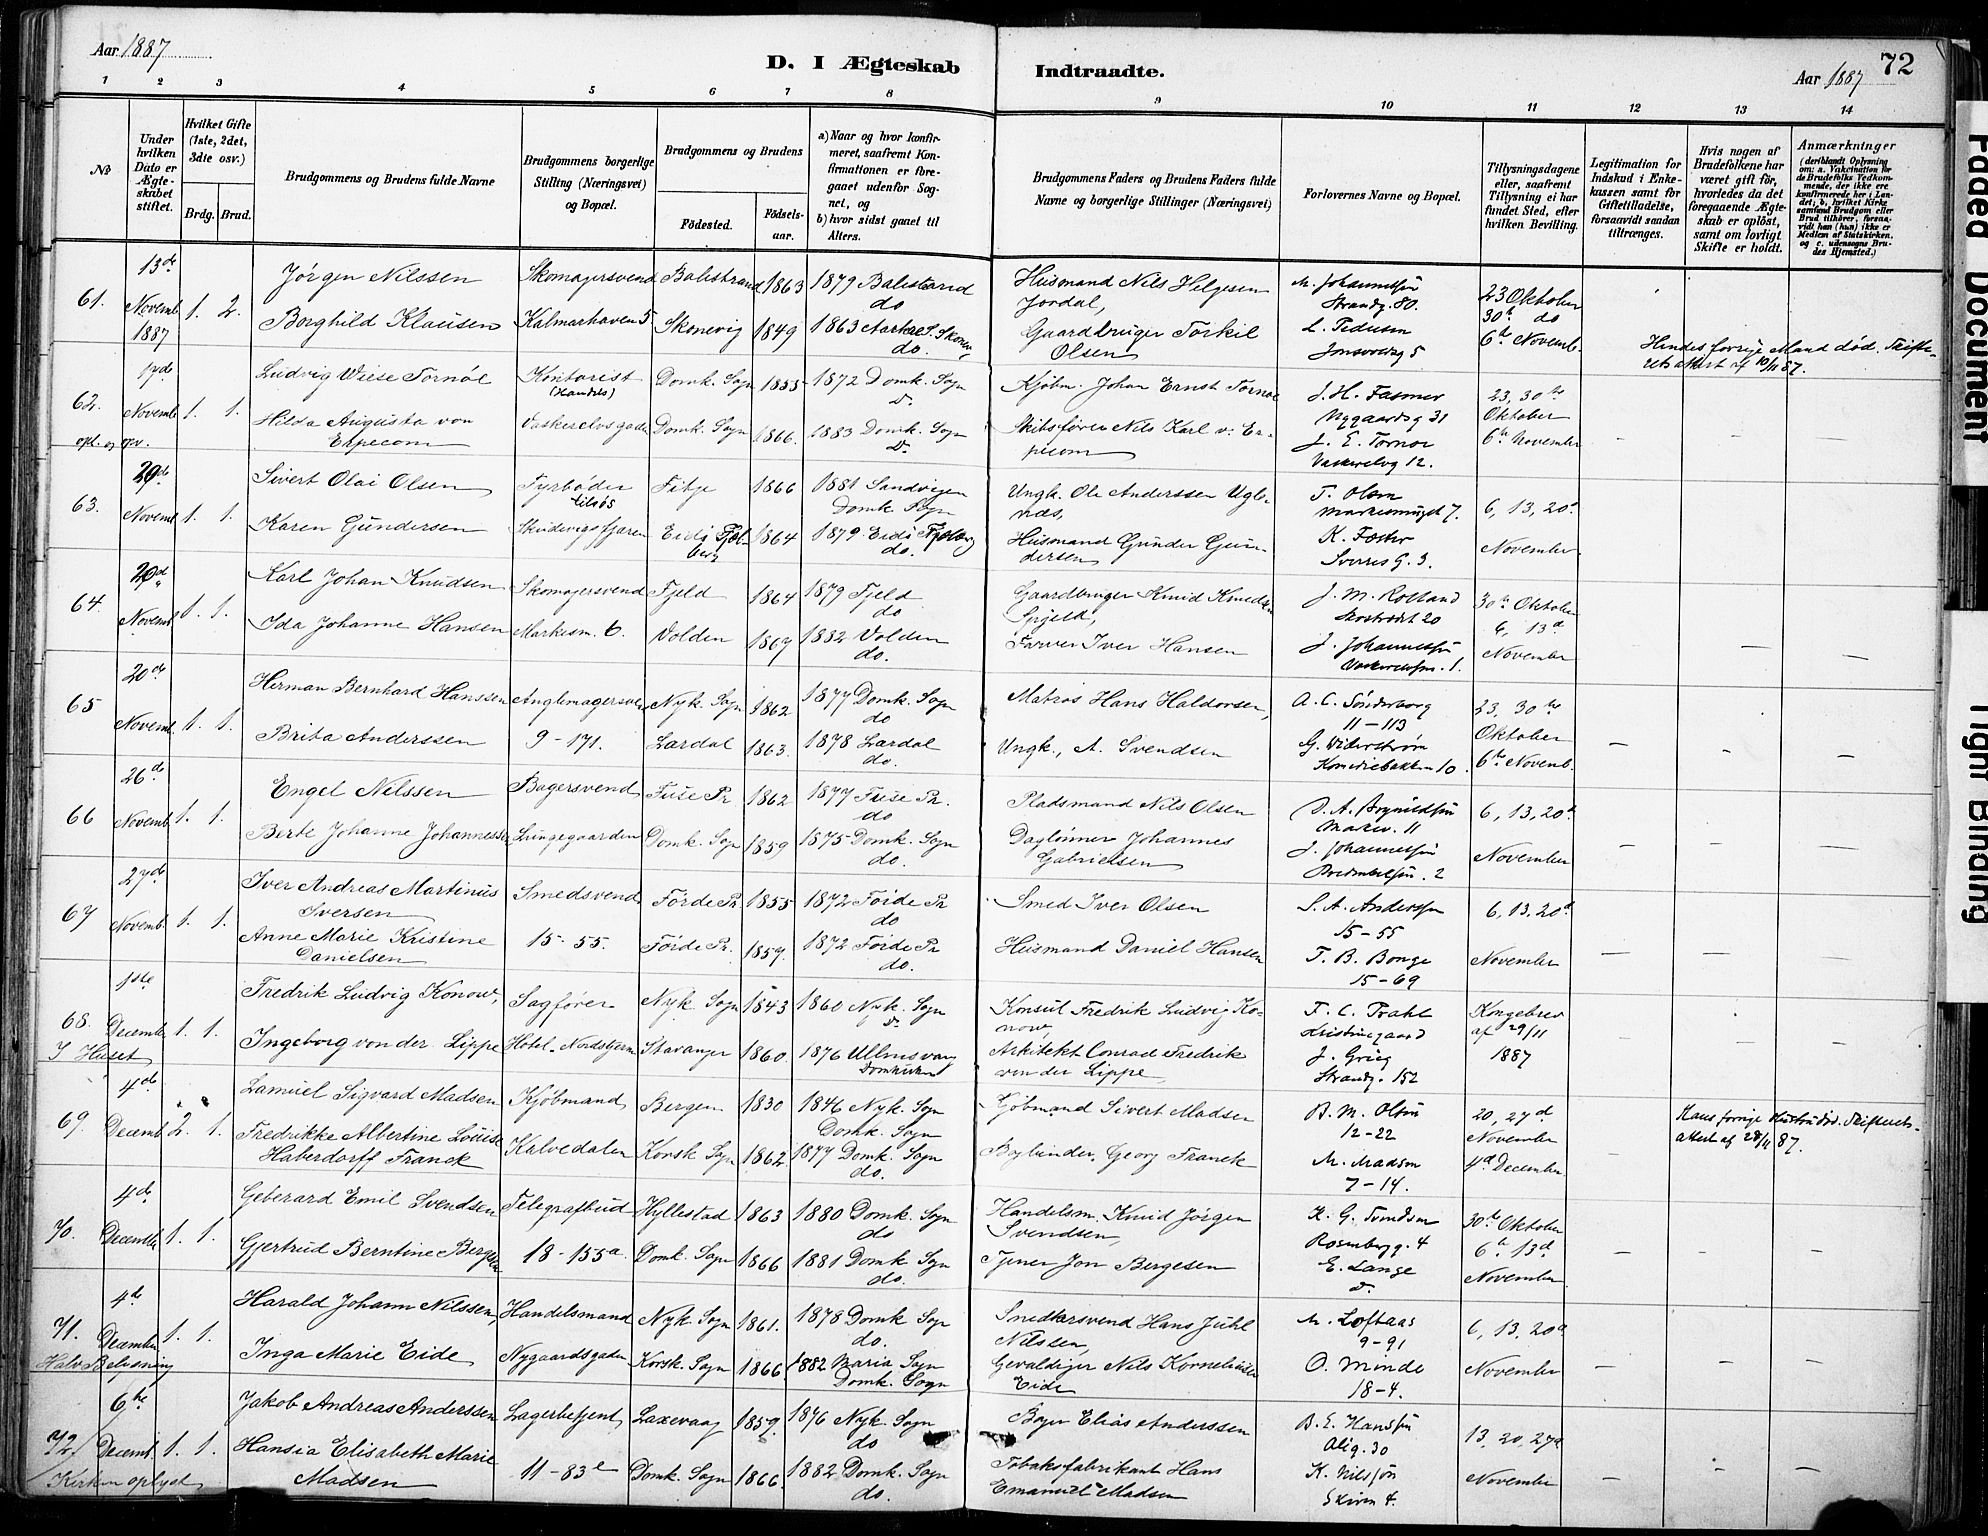 Aar 1887
D. I Ægteskab Indtraadte.
Aar 1887
72
1 2 3 4 5 6 7 8 9 10 11 12 13 14
№
Under hvilken Dato er Ægteskabet stiftet.
Hvilket Gifte (1ste, 2det, 3die osv.)
Brdg. Brud.
Brudgommens og Brudens fulde Navne
Brudgommens borgerlige Stilling (Næringsvei) og Bopæl.
Brudgommens og Brudens
Fødested.
Fødselsaar.
a) Naar og hvor konfirmeret, saafremt Konfirmationen er foregaaet udenfor Sognet, og
b) hvor sidst gaaet til Alters.
Brudgommens Faders og Brudens Faders fulde Navne og borgerlige Stillinger (Næringsvei)
Forlovernes Navne og Bopæl.
Tillysningsdagene eller, saafremt Tillysning ei har fundet Sted, efter hvilken Bevilling.
Legitimation for Indskud i Enkekassen samt for Giftetilladelse, forsaavidt saadan tiltrænges.
Hvis nogen af Brudefolkene har været gift før, hvorledes da det foregaaende Ægteskab er opløst, samt om lovligt Skifte er holdt.
Anmærkninger
(deriblandt Oplysning om: a. Vakcination for de Brudefolks Vedkommende, der ikke ere konfirmerede her i Landet; b, hvilket Kirkesamfund Brudgom eller Brud tilhører, forsaavidt han (hun) ikke er Medlem af Statskirken. og c. udensogns Brudes Hjemsted.)
61. 13de Novemb. 1887 1. 2.
Jørgen Nilssen Skomagersvend Balestrand 1863 1879 Balestrand do Husmand Nils Helgesen Jordal, M. Johannessen Strandg. 80. 23 Oktober 30te do
Borghild Klausen Kalmarhaven 5 Skonevig 1849 1863 do. Gaardbruger Torkil Olsen L. Pedersen 5 6te Novemb.
Hendes forrige Mand død. Skifterets attest af 10/11 87.
62. Novemb. 1. 1.
Ludvig Wiese Tornöe Kontorist (Handels) Domk. Sogn 1855 1872 Domk. Sogn Kjøbm. Johan Ernst Tornöe J. H. Fasmer Nygaardsg 31 23, 30te Oktober
Hilda Augusta von Erpecom Vaskerelvsgaden Domk. Sogn 1866. 1883 Domk. Sogn Skibsfører Nils Karl v. Erpecom J. E. Tornøe Vaskerelvg 12. 6te November
63. 20de Novemb. 1. 1.
Sivert Olai Olsen Fyrbøder tilsøs Fitje 1866 1881 Sandvigen Domk. Sogn Ungk. Ole Anderssen T. Olsen 7. 6, 13, 20de
Karen Gundersen Skudevigsfjæren Eids Fjelberg 1864 1879 Eids Fjelberg do. Husmand Gunder Gundersen Sverres G. 3. November
64. 20de Novemb. 1. 1.
Karl Johan Knudsen Skomagersvend Fjeld 1864 1879 Fjeld do Gaardbruger Knud Knudsen Spjeld, J. M. Rolland 20 30te Oktober
Ida Johanne Hansen Markesm. 6. Volden 1867 1882 Volden do. Farver Iver Hansen J. Johannessen 1. 6, 13de November
65 20de Novemb. 1. 1.
Herman Bernhard Hanssen Nyk. Sogn 1862 1877 Domk. Sogn do Matros Hans Haldorsen, A. C. Sønderborg 11-113 23, 30te Oktober
Brita Anderssen 9-171. Lærdal 1863. 1878 Lærdal do. Ungk., A. Svendsen G. Widerstrøm Komediebakken 10. 6te Novemb.
66 26de Novemb. 1. 1.
Engel Nilssen Bagersvend Fuse Pr. 1862 1877 Fuse Pr. do Pladsmand Nils Olsen 11 6, 13, 20de
Berte Johanne Johannessen Lungegaarden Domk. Sogn 1859 1875 Domk. Sogn do. Dagløner Johannes Gabrielsen J. Johannessen 2 November
67 27de Novemb. 1. 1.
Iver Andreas Martinus Iversen Smedsvend Førde Pr 1855 1872 Førde Pr do Smed Iver Olsen S. A. Anderssen 15-55 6, 13, 20de
Anne Marie Kristine Danielsen 15-55. Førde Pr. 1859. 1872 Førde Pr do. Husmand Daniel Hansen T. B. Bonge 15-69 November
68. 1ste December I Huset 1. 1.
Fredrik Ludvig Konow, Sagfører Nyk. Sogn 1843 1860 Nyk. Sogn Konsul Fredrik Ludvig Konow, F. C. Trahl Kristinegaard Kongebrev af 29/11 1887
Ingeborg von der Lippe Hotel Nordstjernen Stavanger 1860. 1876 Ullensvang Domkirken Arkitekt Conrad Fredrik von der Lippe, J. Grieg Strandg. 152
69. 4de Decemb. 2. 1.
Samuel Sigvard Madsen Kjøbmand Bergen 1830 1846 Nyk. Sogn Domk. Sogn Kjøbmand Sivert Madsen B. M. Olsen 12-22 20, 27de November
Fredrikke Albertine Louise Haberdorff Franck Kalvedalen Korsk. Sogn 1862 1877 Domk. Sogn do. Georg Franck M. Madsen 7-14. 4de December
Hans forrige Hustru død. Skifterets attest af 28/11 87.
70. 4de December 1. 1.
Geberard Emil Svendsen Telegrafbud Hyllestad 1863 1880 Domk. Sogn do Handelsm. Knud Jørgen Svendsen K. G. Svendsen Rosenbergg. 4 30te Oktober
Gjertrud Berntine Bergesen 18-155a Domk. Sogn 1866 1881 Domk. Sogn do. Tjener Jon Bergesen E. Lange 6te 13de November
71. 4de December Halv Belysning 1. 1.
Harald Johann Nilssen, Handelsmand Nyk. Sogn 1861. 1878 Domk Sogn do. Hans Juhl Nilssen, M. Loftaas 9-91 6, 13, 20de
Inga Marie Eide Nygaardsgaden Korsk. Sogn 1866 1882 Maria Sogn Domk. Sogn Gevaldiger Nils Korneliussen Eide O. Minde 18-4. November
72. 6te Decemb. Kirken oplyst 1. 1.
Jakob Andreas Anderssen Lagerbetjent Laxevaag 1859. 1876 Nyk. Sogn do Elias Anderssen B. E. Hanssen 30 13, 20, 27de
Hansia Elisabeth Marie Madsen 11-83e Domk. Sogn 1866. 1882 Domk. Sogn do. Tobaksfabrikant Hans Emanuel Madsen K. Nilssøn Skiven 4. November
Faded Document
Tight Binding